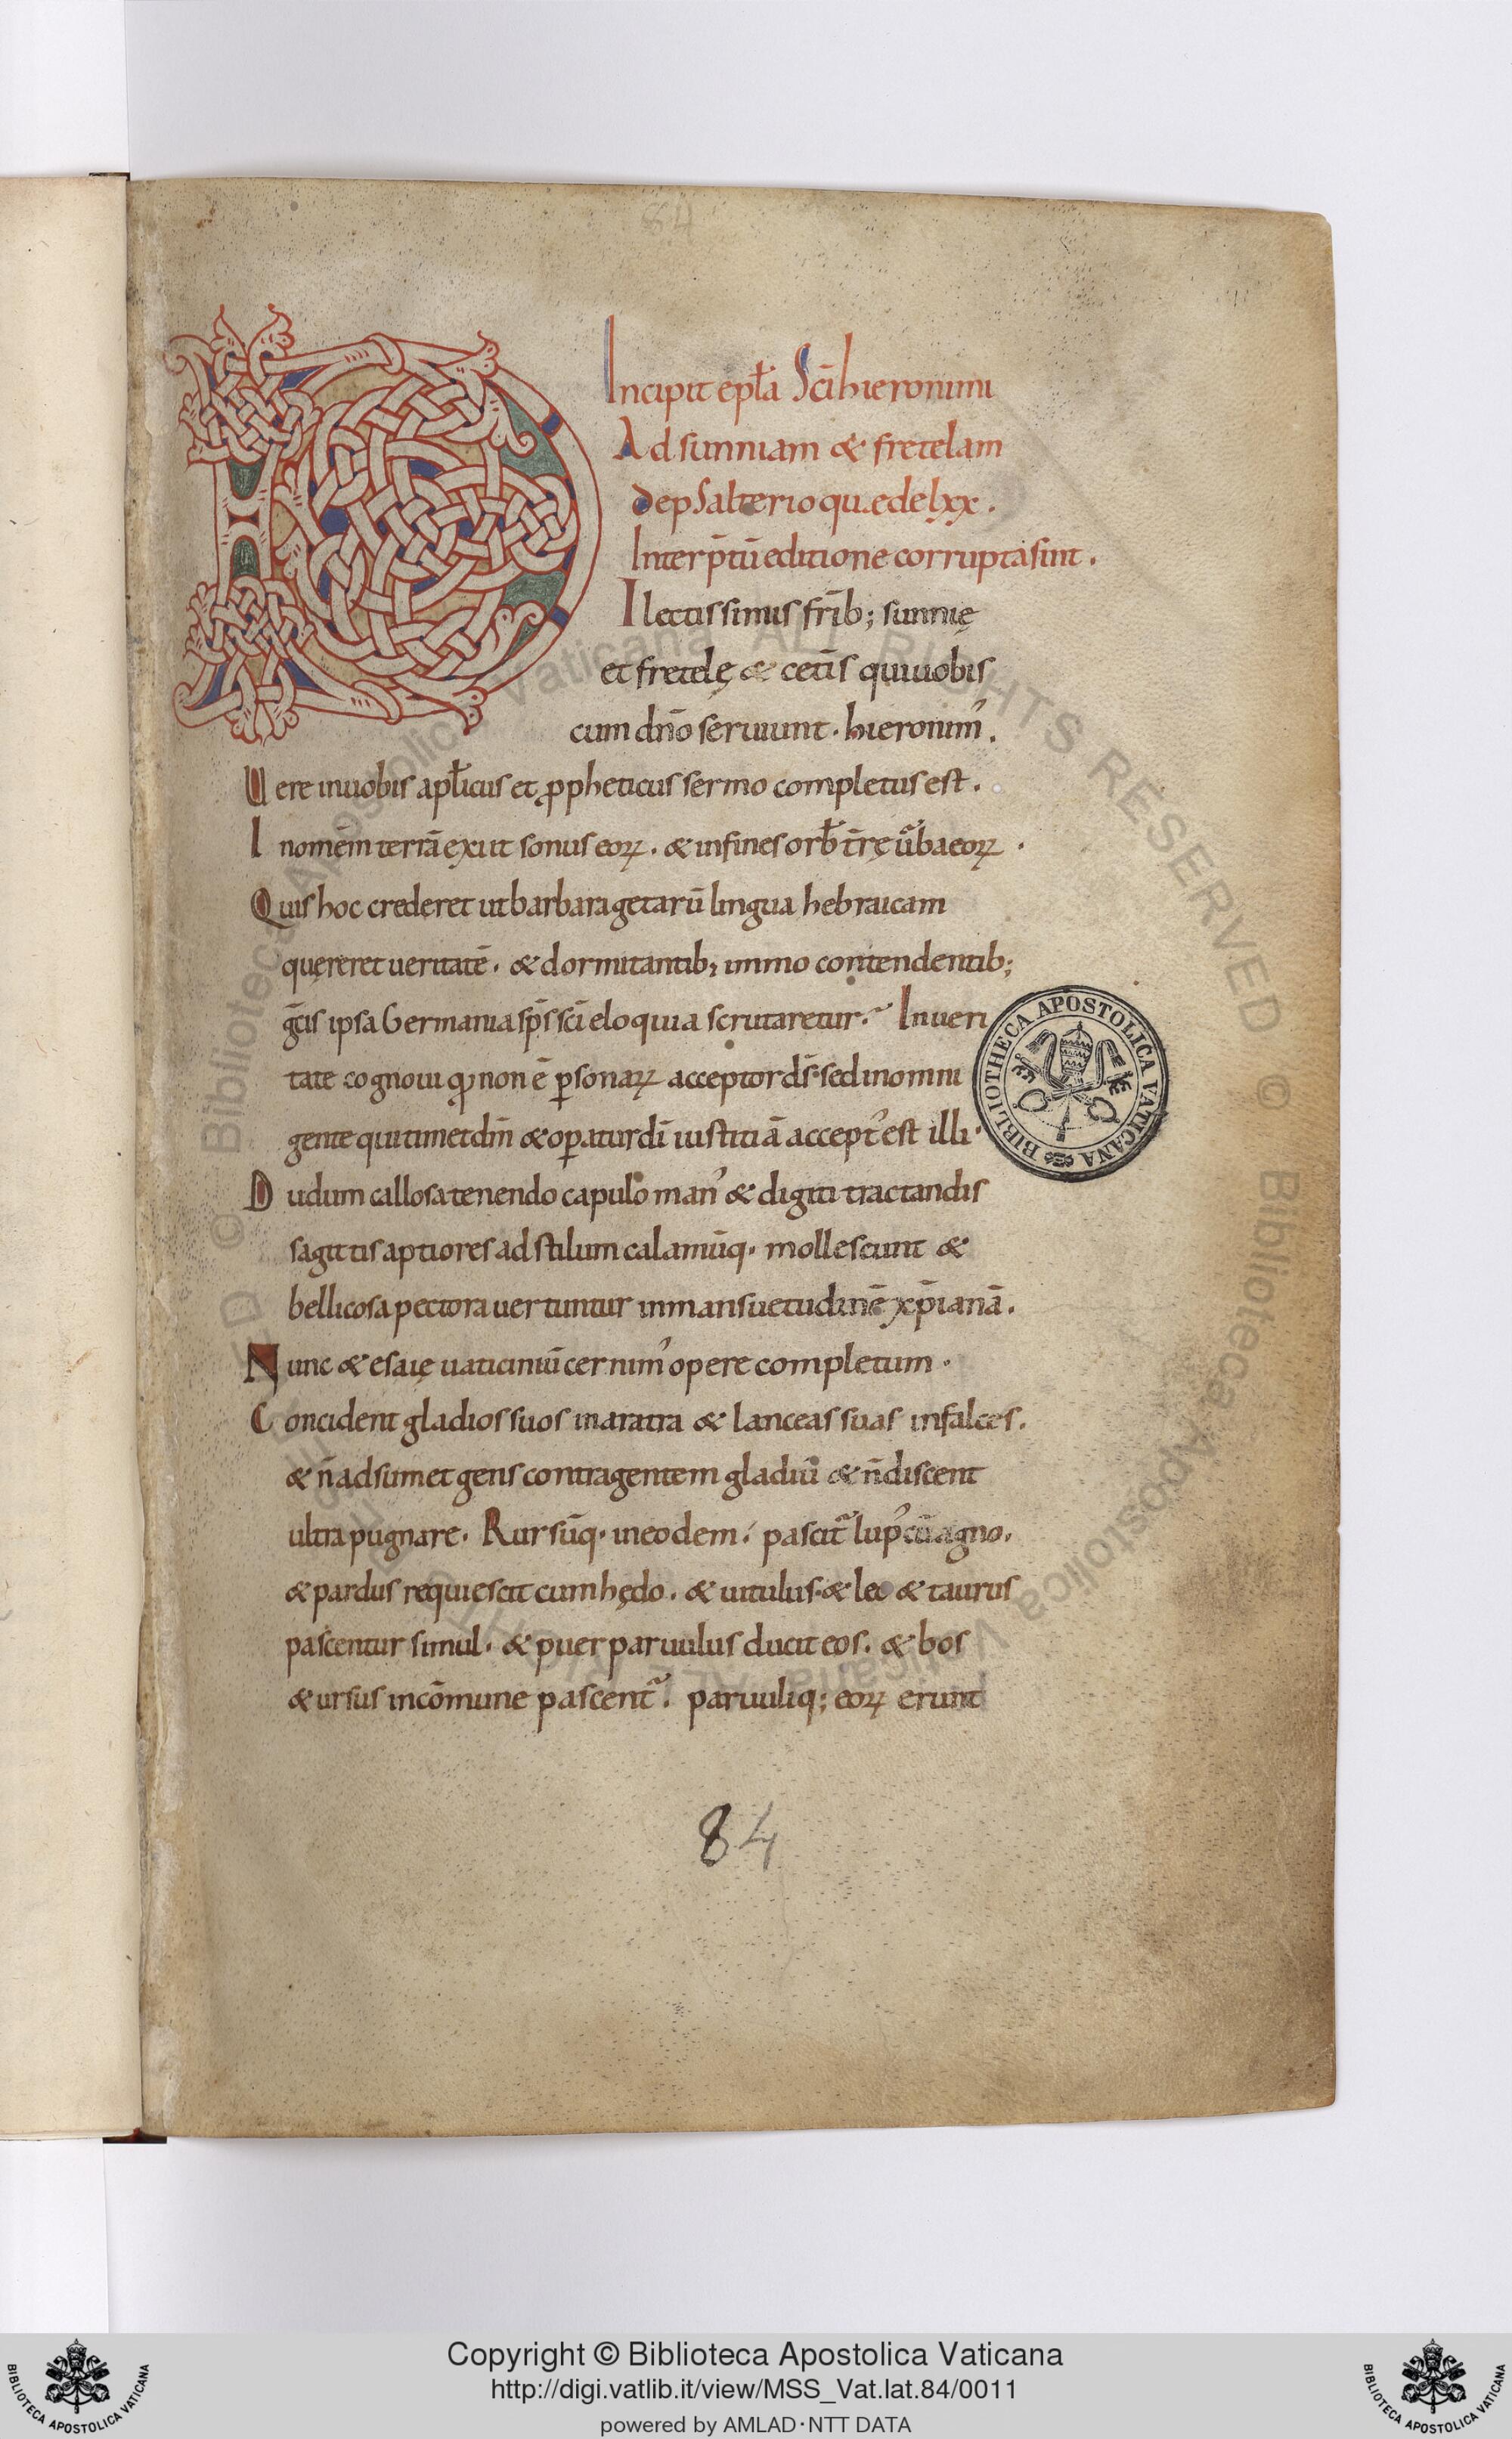 84
Incipit epl̄a Sc̄i hieronimi
Ad sunniam & fretelam
de psalterio quae de lxx.
Interp̄tū editione corrupta sint.
DIlectissimis frīb; sunnię
et fretelę & cet̄is qui uobis
cum dn̄o seruiunt. hieronim᾽.
Uere in uobis apl̄icus et ꝓpheticus sermo completus est.
In omēm terrā exiit sonus eoꝝ. & in fines orb̄ t̄rę ūba eoꝝ.
Quis hoc crederet ut barbara getarū lingua hebraicam
quęreret ueritatē. & dormitantib; immo contendentib;
ḡcis ipsa Germania sp̄s sc̄i eloquia scrutaretur. In ueri
tate cognoui qđ non ē ꝑsonaꝝ acceptor ds̄. sed in omni
gente qui timet dm̄ & oꝑatur dī iustitiā accept᾽ est illi.
Dudum callosa tenendo capulo man᾽ & digiti tractandis
sagittis aptiores ad stilum calamūq. mollescunt &
bellicosa pectora uertuntur in mansuetudinē xp̄ianā.
Nunc & esaię uaticiniū cernim᾽ opere completum.
Concident gladios suos in aratra & lanceas suas in falces.
& n̄ adsumet gens contra gentem gladiū & n̄ discent
ultra pugnare. Rursūq. in eodem. pascit᷑ lup᾽ cū agno.
& pardus requiescit cum hędo. & uitulus. & leo & taurus
pascentur simul. & puer paruulus ducit eos. & bos
& ursus in cōmune pascent᷑. paruuliq; eoꝝ erunt
BIBLIOTHECA APOSTOLICA VATICANA
84
© Biblioteca Apostolica Vaticana ALL RIGHTS RESERVED © Biblioteca Apostolica Vaticana
Copyright © Biblioteca Apostolica Vaticana
http://digi.vatlib.it/view/MSS_Vat.lat.84/0011
powered by AMLAD·NTT DATA
BIBLIOTECA APOSTOLICA VATICANA
BIBLIOTECA APOSTOLICA VATICANA